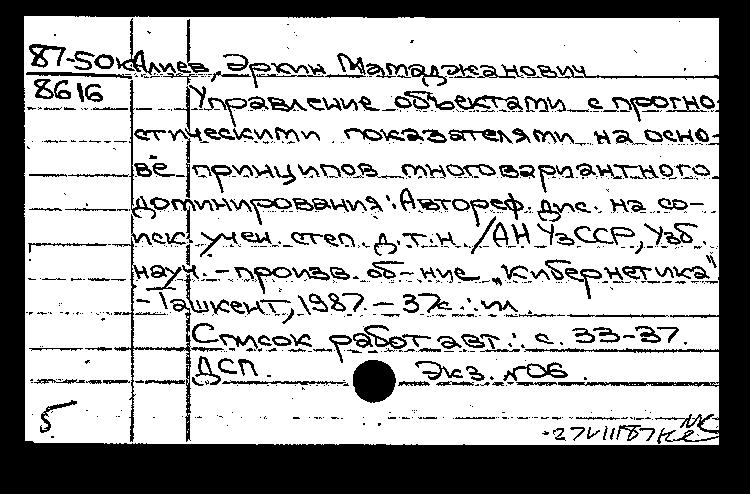 87-50к Алиев, Эркин Матаджанович
8616 Управление объектами с прогно-
стическими показателями на осно-
ве принципов многовариантного
доминирования: Автореф. дис. на со-
иск. учен. степ. д.т.н. /АН УзССР, Узб.
науч.-произв. об-ние „Кибернетика"
-Ташкент, 1987.-37с.:ил.
Список работ авт.: с. 33-37.
ДСП. Экз. №06.
5
27VIII87